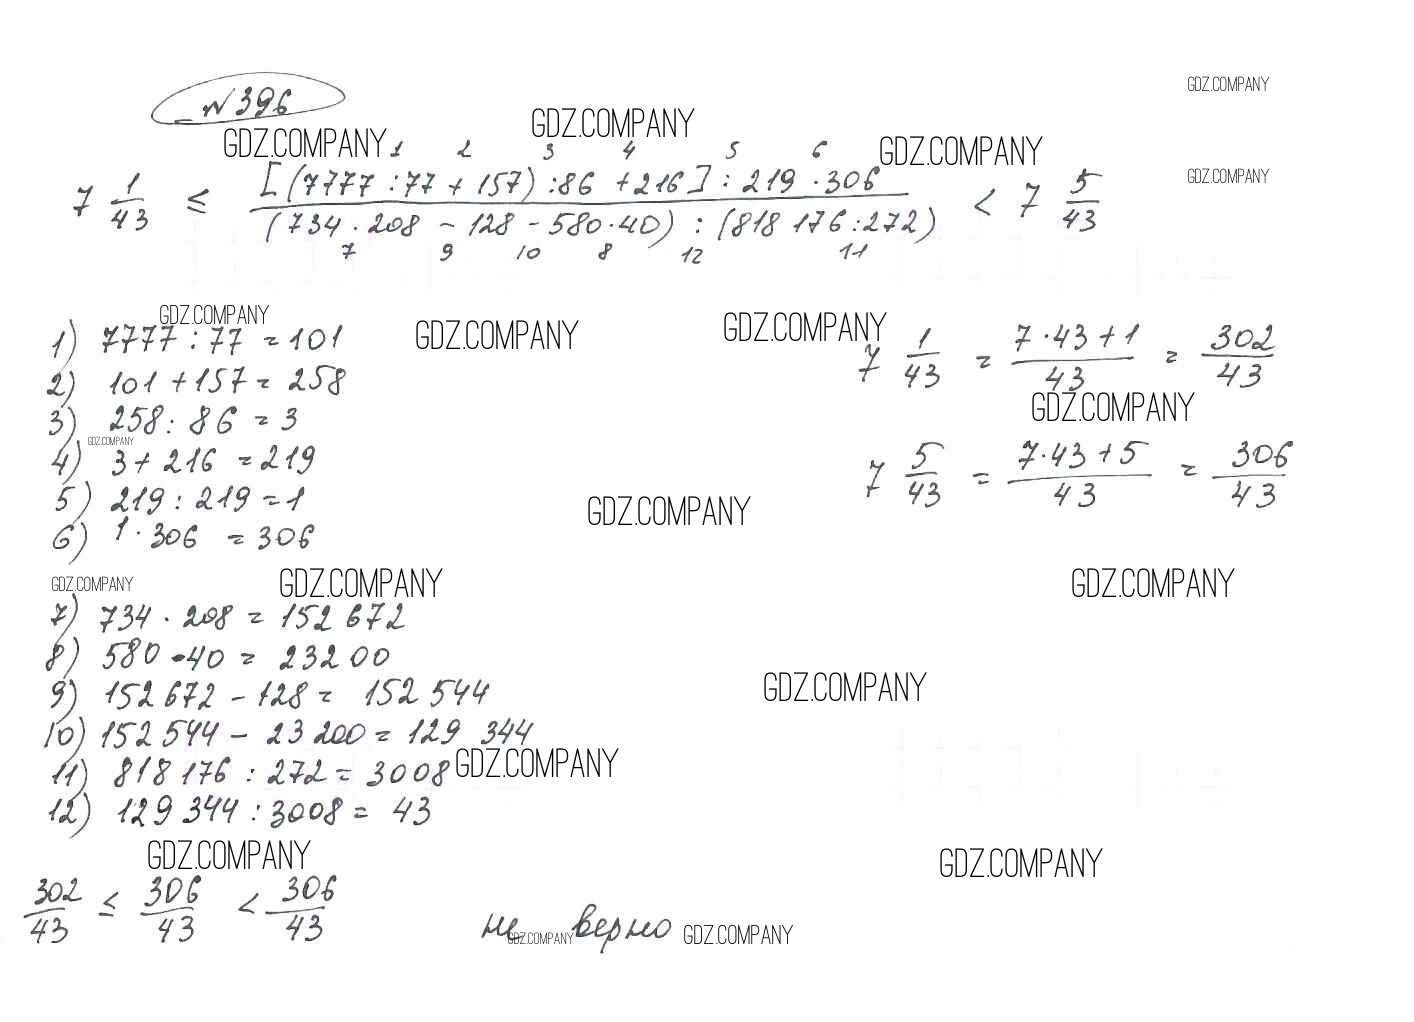 №396
GDZ.COMPANY
GDZ.COMPANY GDZ.COMPANY GDZ.COMPANY
1 2 3 4 5 6
7 1/43 ≤ [(7777 : 77 + 157) : 86 + 216] : 219 · 306 / (734 · 208 - 128 - 580 · 40) : (818 176 : 272) < 7 5/43
GDZ.COMPANY
7 9 10 8 12 11
GDZ.COMPANY GDZ.COMPANY GDZ.COMPANY
1) 7777 : 77 = 101
7 1/43 = 7·43+1/43 = 302/43
2) 101 + 157 = 258
GDZ.COMPANY
3) 258 : 86 = 3
GDZ.COMPANY
4) 3 + 216 = 219
7 5/43 = 7·43+5/43 = 306/43
5) 219 : 219 = 1
GDZ.COMPANY
6) 1 · 306 = 306
GDZ.COMPANY GDZ.COMPANY GDZ.COMPANY
7) 734 · 208 = 152 672
8) 580 · 40 = 23200
GDZ.COMPANY
9) 152 672 - 128 = 152 544
10) 152 544 - 23 200 = 129 344
11) 818 176 : 272 = 3008
GDZ.COMPANY
12) 129 344 : 3008 = 43
GDZ.COMPANY GDZ.COMPANY
302/43 ≤ 306/43 < 306/43 не верно
GDZ.COMPANY GDZ.COMPANY